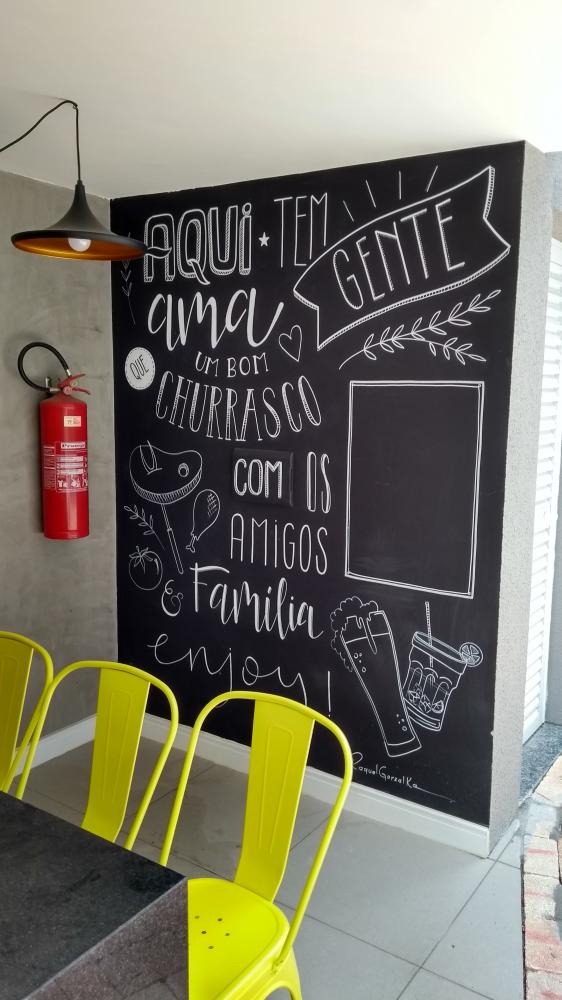 AQUI TEM
GENTE
QUE
ama
UM BOM
CHURRASCO
COM OS
AMIGOS
& Família
enjoy!
Raquel Gorzalka